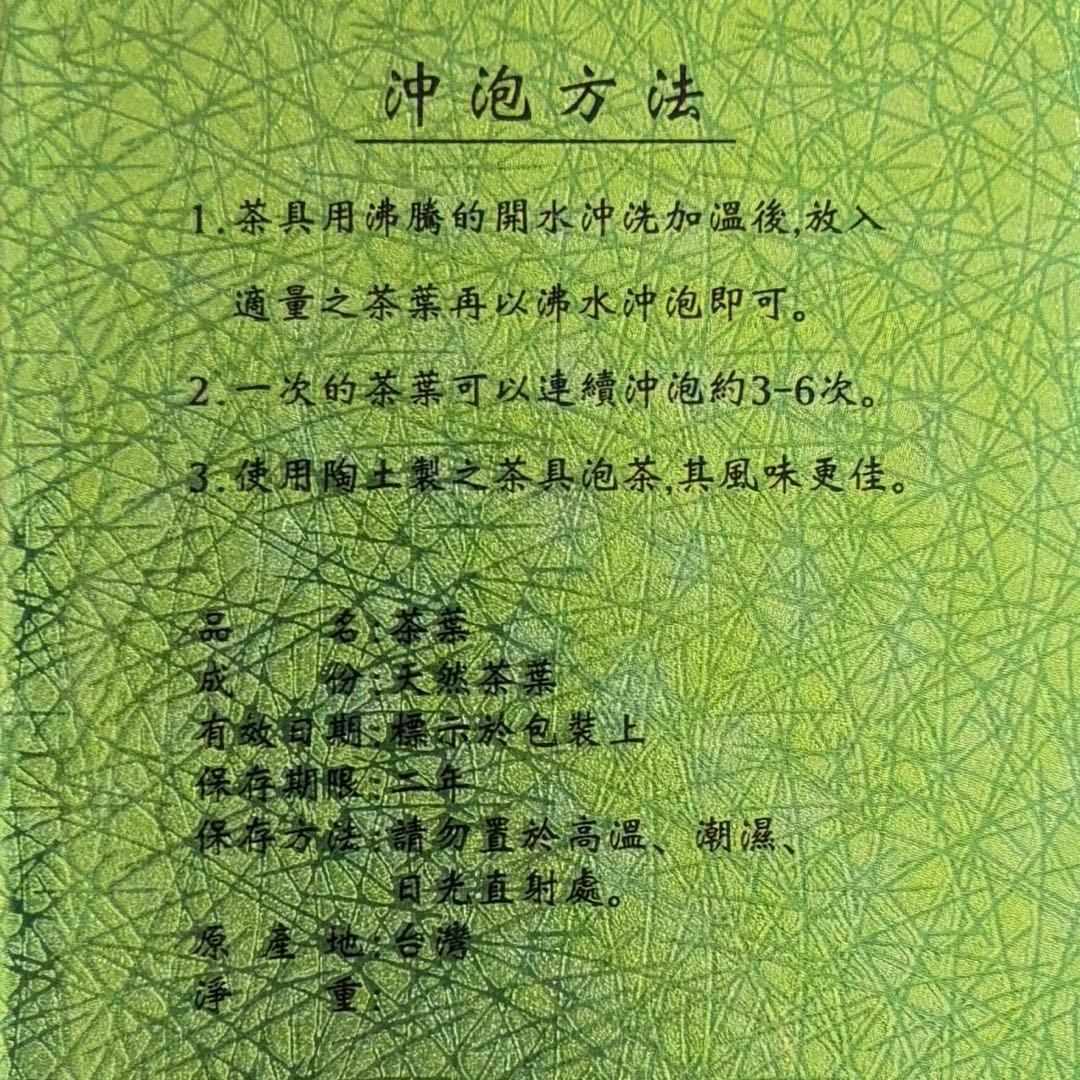 沖泡方法
1.茶具用沸騰的開水沖洗加溫後,放入
適量之茶葉再以沸水沖泡即可。
2.一次的茶葉可以連續沖泡約3-6次。
3.使用陶土製之茶具泡茶,其風味更佳。
品　　名:茶葉
成　　份:天然茶葉
有效日期:標示於包裝上
保存期限:二年
保存方法:請勿置於高溫、潮濕、
日光直射處。
原 產 地:台灣
淨　　重: